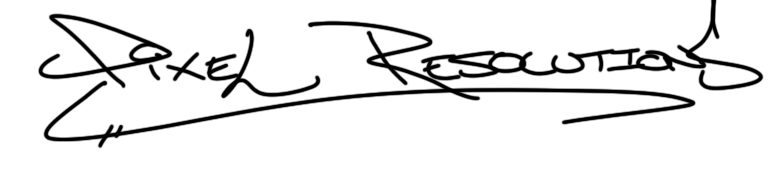 Pixel Resolutions